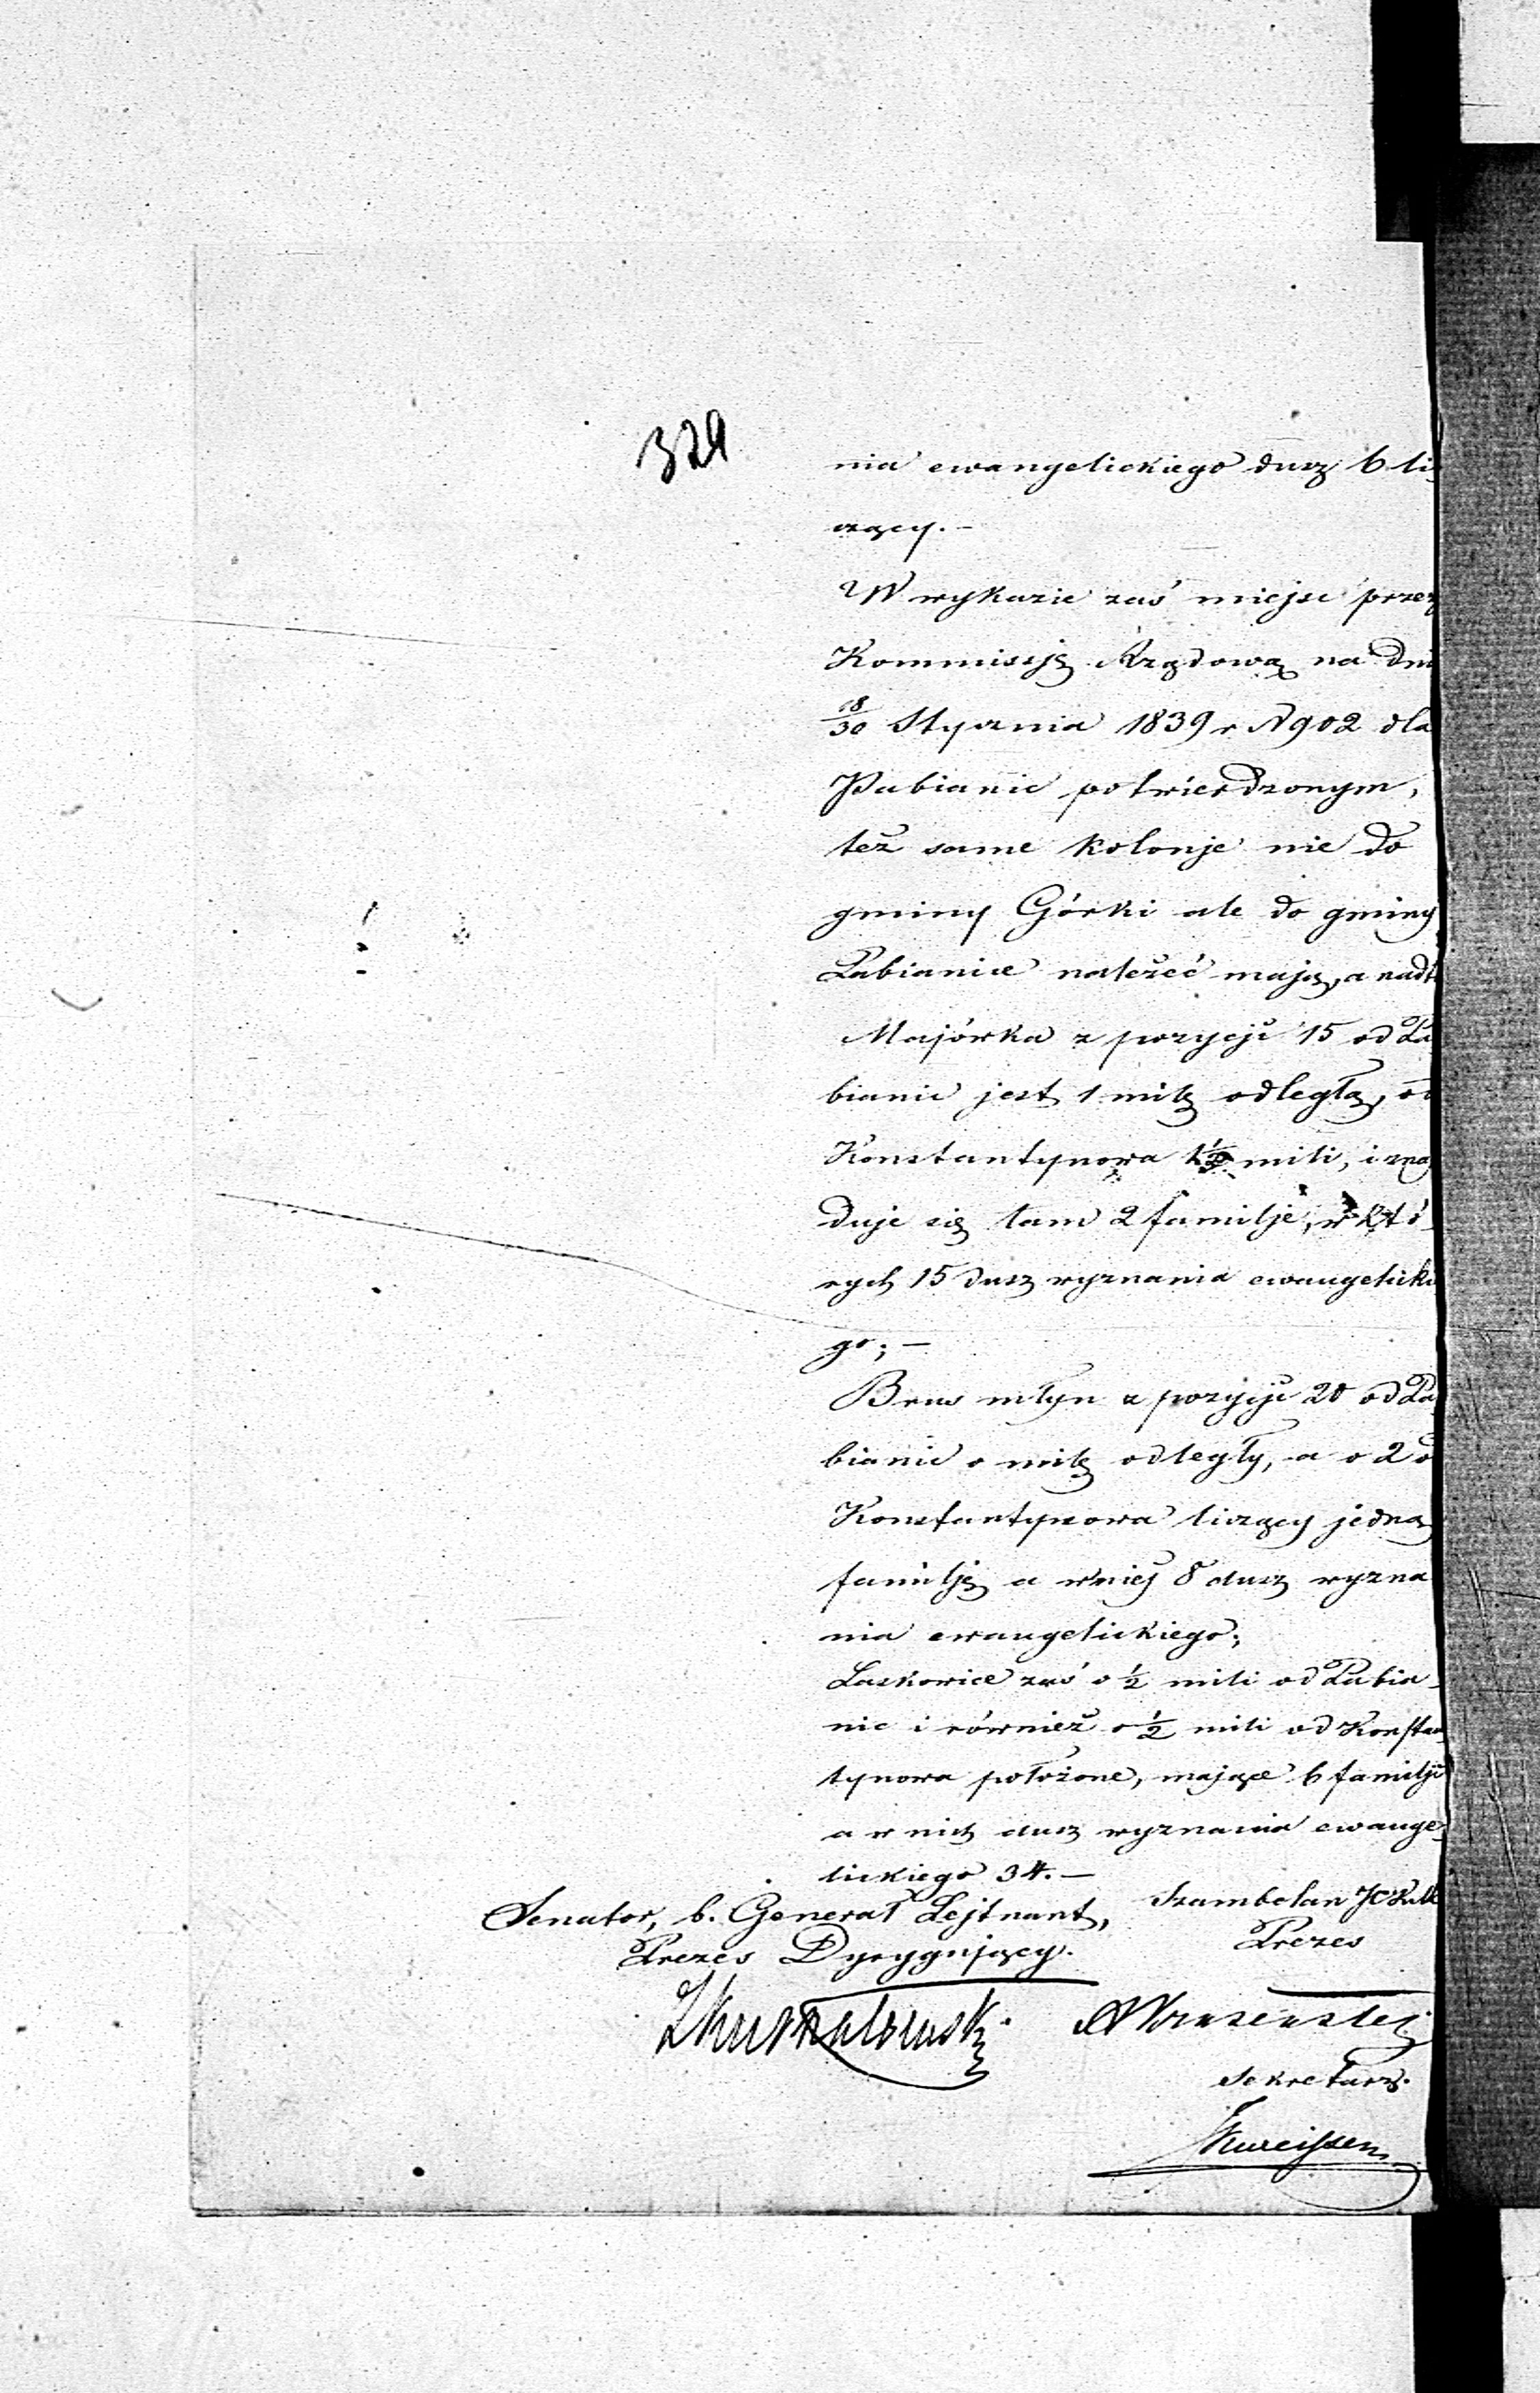 329
nia ewangelickiego dusz 6 li-
czący. —
W wykazie zaś miejsc przez
Kommissję Rządową na dni
18/30 Stycznia 1839 r N 902 dla
Pabianic potwierdzonym,
też same kolonje nie do
gminy Górki ale do gminy
Pabianice należeć mają, a nadt
Majówka z pozycji 15 od Pa
bianic jest 1 milę odległą, od
Konstantynowa 1½ mili, i znaj
duje się tam 2 familje, w któ-
rych 15 dusz wyznania ewangelickie
go; —
Brus młyn z pozycji 20 od Pa
bianic o milę odległy, a o 2 o
Konstantynowa liczący jedną
familję a w niej 8 dusz wyzna
nia ewangelickiego;
Laskowice zaś o ½ mili od Pabia-
nic i również o ½ mili od Konstan
tynowa położone, mające 6 familji
a w nich dusz wyznania ewange-
lickiego 34. —
Senator, b. Generał Lejtnant,
Prezes Dyrygujący.
Szambelan
Prezes
Sekretarz.